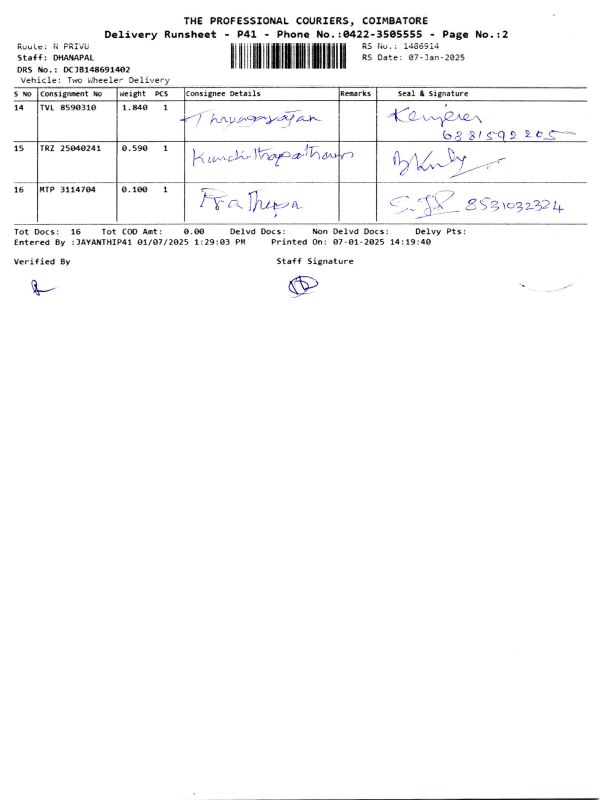 THE PROFESSIONAL COURIERS, COIMBATORE
Delivery Runsheet - P41 - Phone No.:0422-3505555 - Page No.:2
Route: N PRIVU RS No.: 1486914
Staff: DHANAPAL RS Date: 07-Jan-2025
DRS No.: DCJB148691402
Vehicle: Two Wheeler Delivery
S No Consignment No Weight PCS Consignee Details Remarks Seal & Signature
14 TVL 8590310 1.840 1
6381592205
15 TRZ 25040241 0.590 1
16 MTP 3114704 0.100 1 8531032324
Tot Docs: 16 Tot COD Amt: 0.00 Delvd Docs: Non Delvd Docs: Delvy Pts:
Entered By :JAYANTHIP41 01/07/2025 1:29:03 PM Printed On: 07-01-2025 14:19:40
Verified By Staff Signature